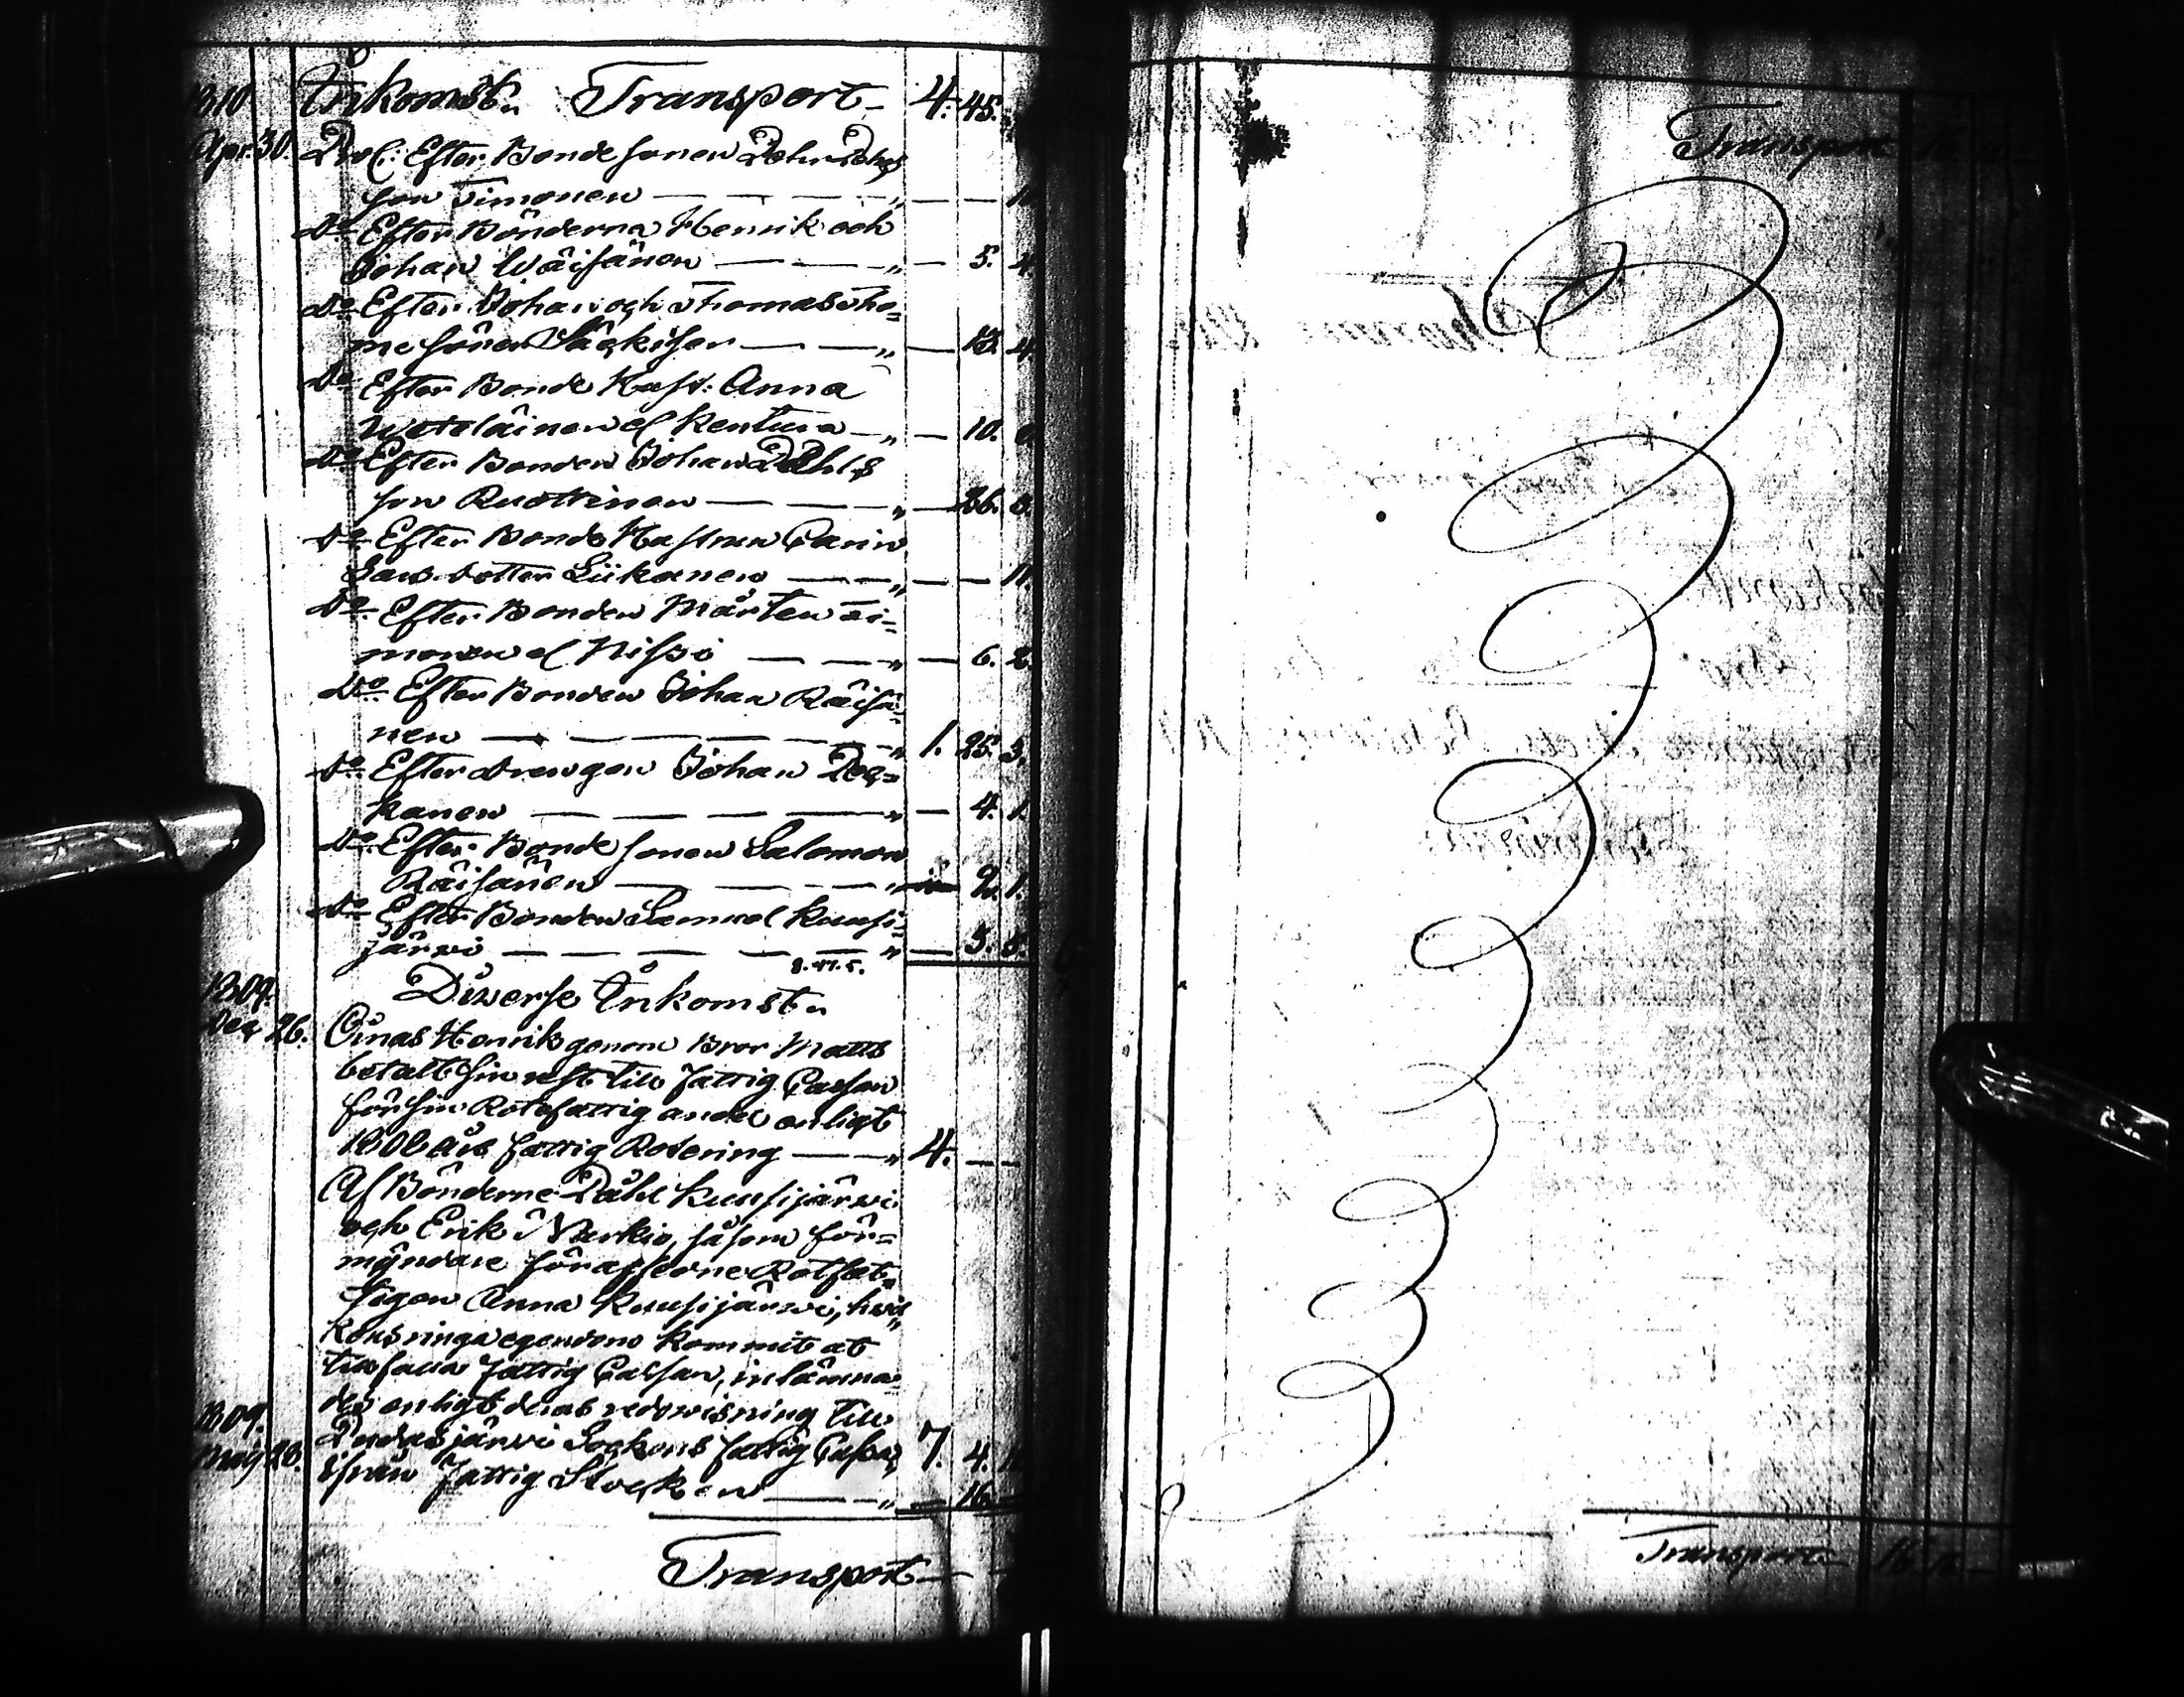 1810 Inkomst. Transport 4. 45.
Apr. 30. Proc: Efter Bonde sonen Pehr Pehrs
son Timonen — — — „ — — 11
Do Efter Bönderna Henrik och
Johan Wäisänen — — „ — 5. 4
Do Efter Johan och Thomas Tho=
me söner Säkkisen — — „ — 13. 4
Do Efter Bonde Hust: Anna
Weteläinen el Kentura — „ — 10.
Do Efter Bonden Johan Påhls
son Ruottinen — — „ — 26. 8.
Do Efter Bonde Hustrun Carin
Lars dotter Liikanen — — „ — — 11.
Do Efter Bonden Mårten Si=
monen el Nissi — — „ — 6. 2.
Do Efter Bonden Johan Räisä=
nen — — — — „ 1. 25. 3.
Do Efter drengen Johan Pek=
kanen — — — — „ — 4. 1.
Do Efter Bonde sonen Salomon
Räisänen — — — „ — 2. 1.
Do Efter Bonden Samuel Kuusi=
järwi — — — — „ — 5. 8.
8. 47. 5.
1809. Diverse Inkomst.
Dec 26. Oinas Henrik genom Bror Matts
betalt sin rest till Fattig Cassan
för sin Rotefattig andel enligt
1808 års fattig Rotering — — „ 4. — —
Af Bönderne Påhl Kuusijärwi
och Erik Narkio, såsom för=
myndare för afledne Rotfat=
tigen Anna Kuusijärwi, hwil„
kens ringa egendom kommit at
tillfalla Fattig Cassan, inlämna=
des enligt deras redowisning till
1809. Pudasjärwi Sockens fattig Cassa, 7. 4. 11
Maij 28. Ifrån Fattig Stocken — — „ — 16.
Transport —
Transport 16.
Transport 16. 16. —